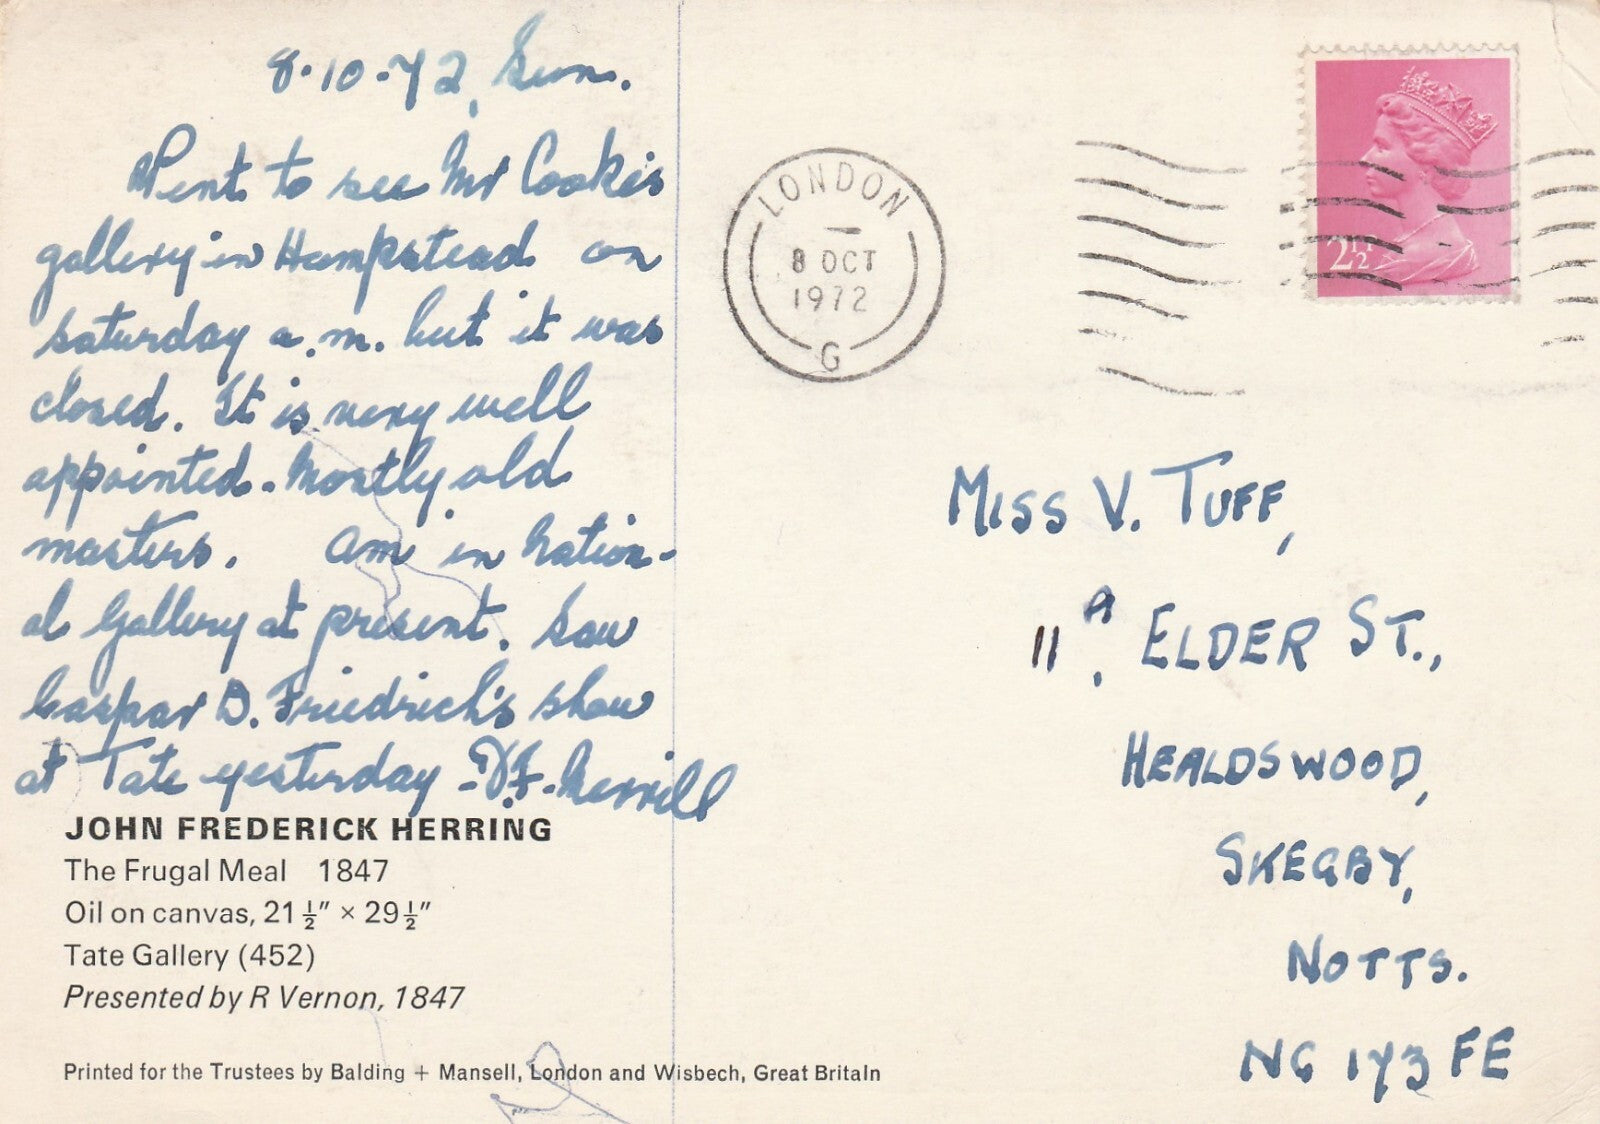 8.10.72, Sun.
Went to see Mr Cooke's
gallery in Hampstead on
Saturday a.m. but it was
closed. It is very well
appointed. Mostly old
masters. Am in Nation-
al Gallery at present. Saw
Caspar D. Friedrich's show
at Tate yesterday - D.F. Merrill
JOHN FREDERICK HERRING
The Frugal Meal 1847
Oil on canvas, 21½" × 29½"
Tate Gallery (452)
Presented by R Vernon, 1847
Printed for the Trustees by Balding + Mansell, London and Wisbech, Great Britain
LONDON
8 OCT
1972
G
2½
MISS V. TUFF,
11A, ELDER ST.,
HEALDSWOOD,
SKEGBY,
NOTTS.
NG 17 3 FE